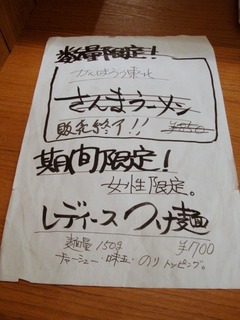 数量限定!
さんまラーメン
販売終了!!
¥850
期間限定!
女性限定。
レディースつけ麺
麺量 150g ¥700
チャーシュー・味玉・のりトッピング。